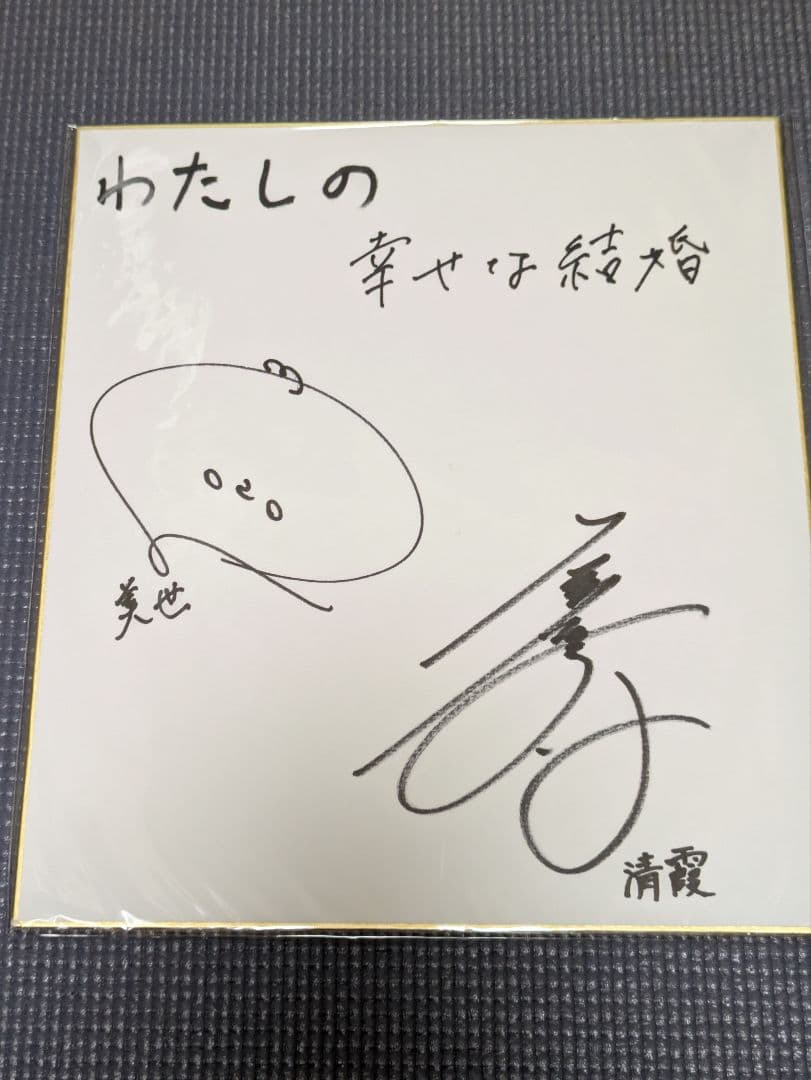 わたしの
幸せな結婚
美世
清霞